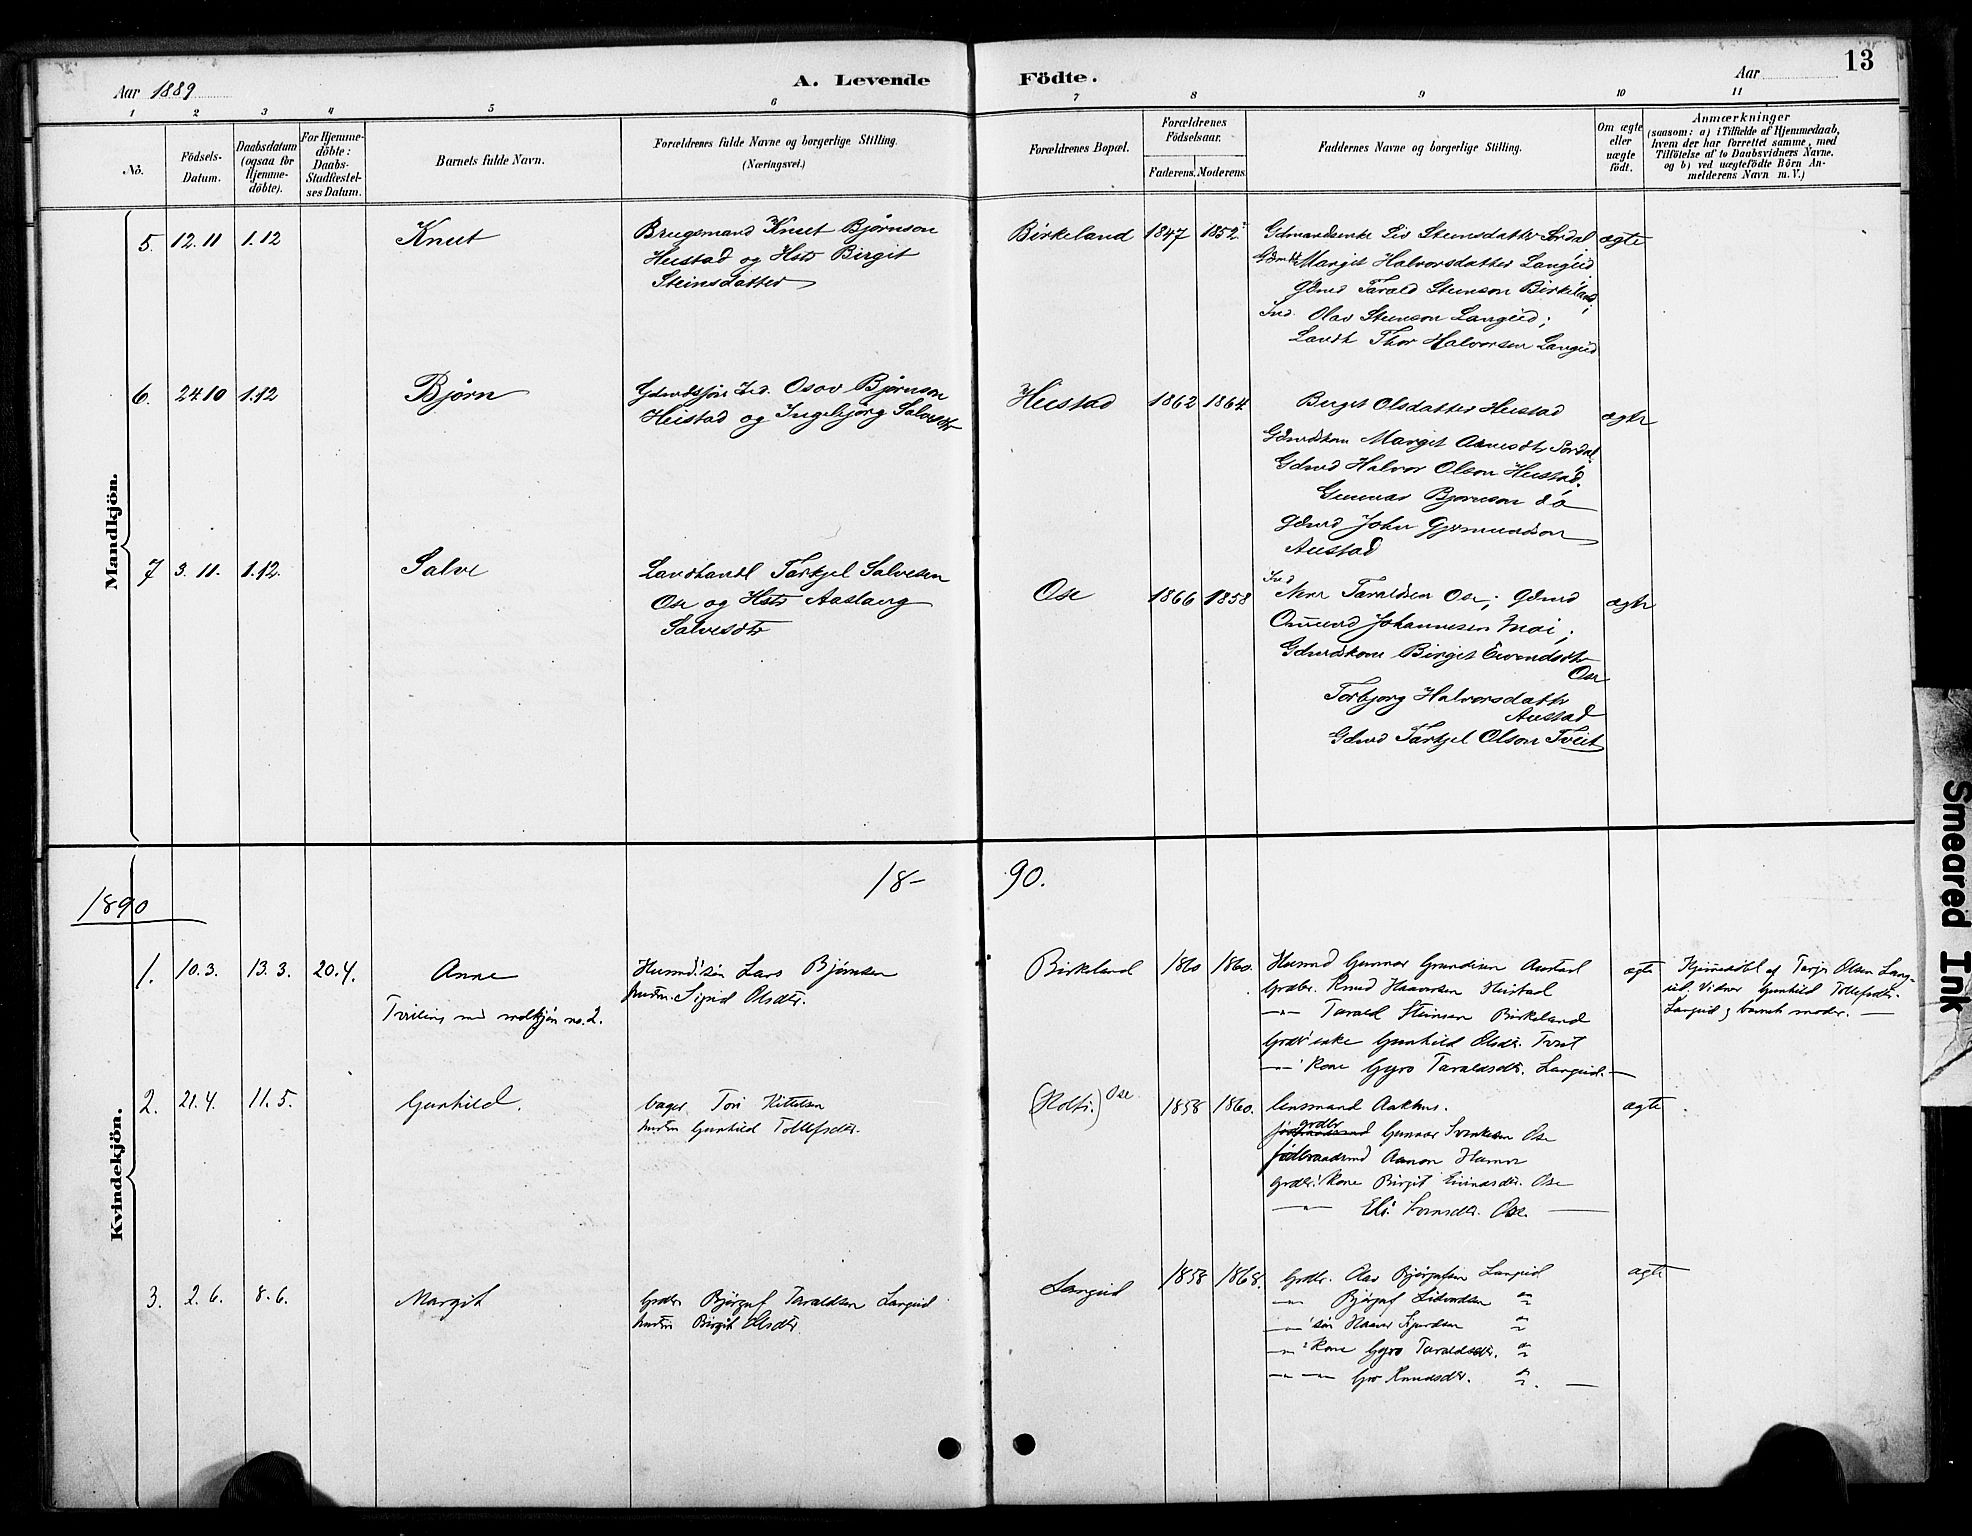 13
Aar 1889
A. Levende
Födte.
Aar
1 2 3 4 5 6 7 8 9 10 11
No.
Födsels-
Datum.
Daabsdatum
(ogsaa for
Hjemme-
döbte).
For Hjemme-
döbte:
Daabs-
Stadfæstel-
ses Datum.
Barnets fulde Navn.
Forældrenes fulde Navne og borgerlige Stilling.
(Næringsvei.)
Forældrenes Bopæl.
Forældrenes
Födselsaar.
Faderens. Moderens.
Faddernes Navne og borgerlige Stilling.
Om ægte
eller
uægte
födt.
Anmærkninger
(saasom: a) i Tilfælde af Hjemmedaab,
hvem der har forrettet samme, med
Tilföielse af to Daabsvidners Navne,
og b) ved uægtefödte Börn An-
melderens Navn m. V.)
Mandkjön.
5. 12.11 1.12
Knut
Brugsmand Knut Bjørnson
Heistad og Hstr Birgit
Steinsdatter
Birkeland
1847 1852
Gdmandsenke Liv Steinsdatter Sordal
Margit Halvorsdatter Langeid
Gdmd Tarald Steinson Birkeland;
Ind. Olav Steinson Langeid;
Landh Thor Halvorsen Langeid
ægte
6. 24.10 1.12
Bjørn
Gdmdssøn Ind. Osov Bjørnson
Heistad og Ingebjørg Salvesdtr
Heistad
1862 1864
Birgit Olsdatter Heistad
Gdmdskone Margit Aanesdtr Sordal.
Gdmd Halvor Olson Heistad.
Gunnar Bjørnson do
Gdmd John Gjermundson
Austad
ægte
7 3.11. 1.12.
Salve
Landhandl Tarkjel Salvesen
Ose og Hstr Aasbjørg
Salvesdtr
Ose
1866 1858
Ind
Taraldsen Ose; Gdmd
Omund Johannesen Moi;
Gdmdskone Birgit Eivendsdtr
Ose
Torbjorg Halvorsdatter
Austad
Gdmd Tarkjel Olson Tveit
ægte
18-
90.
1890
Kvindekjön.
1. 10.3. 13.3. 20.4.
Anne
Tvilling med mdkjøn no. 2.
Husmd.søn Lars Bjørnsen
Hustru Sigrid Olsdtr.
Birkeland
1860 1860.
Husmd Gunnar Gundersen Austad
Grdbr. Knud Haavorsen Heistad
—"— Tarald Steinsen Birkeland
Grdbr enke Gunhild Olsdtr. Tveit
—"— Kone Gyro Taraldsdtr. Langeid.
ægte
Hjemmedøbt af Tarje Olsen Lang-
eid. Vidner Gunhild Tollefsdtr.
Langeid og barnets moder.
2. 21.4. 11.5.
Gunhild.
Bager Tore Kittelsen
Hustru Gunhild Tollefsdtr.
(Holti.) Ose
1858 1860.
Lensmand Aakhus.
grdbr Gunnar Svenkesen Ose
Aanon Hamre
grdbr. Kone Birgit Eivindsdtr. Ose
—"— Eli Svensdtr. Ose
ægte
3. 2.6. 8.6.
Margit
Grdbr Bjørguf Taraldsen Langeid
Hustru Birgit Olsdtr.
Langeid
1858 1868.
Grdbr. Olav Bjørgufsen Langeid
—"— Bjørguf Sidvordsen "
—"— søn Haavor Sjurdsen "
—"— Kone Gyro Taraldsdtr. "
—"— —"— Gro Knudsdtr. "
ægte
Smeared Ink